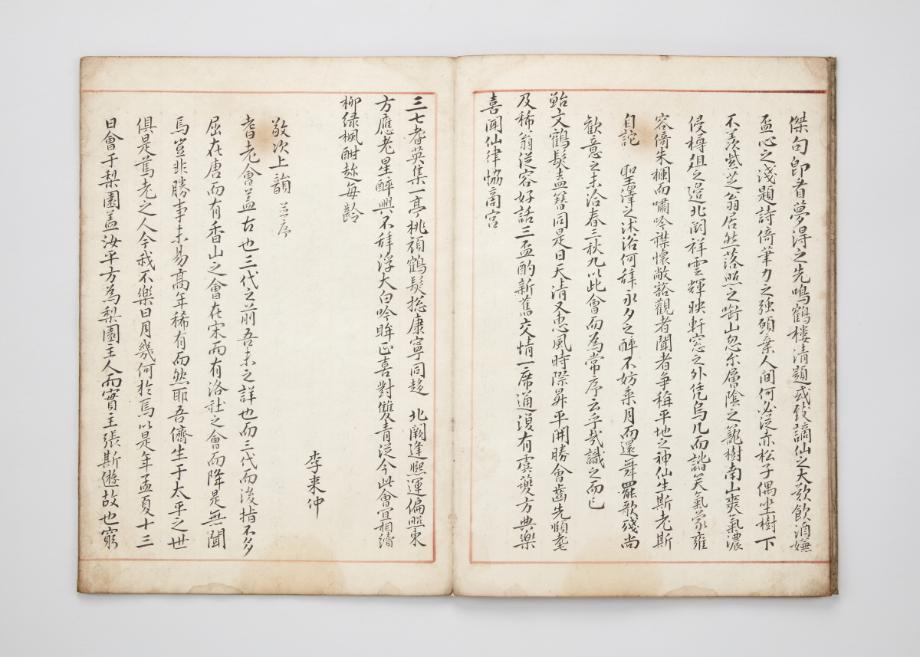 傑句即看夢得之先鳴鶴樓清題或伐謫仙之大歌飮酒嫌
盃心之淺題詩倚筆力之強願棄人間何必從赤松子偶坐樹下
不羨紫芝翁居然落照之啣山忽尒層陰之籠樹南山爽氣濃
侵樽俎之邊北闕祥雲輝映軒窓之外凭烏几而諧笑氣象雍
容倚朱欄而嘯吟襟懷敞豁觀者聞者爭稱平地之神仙生斯老斯
自詑 聖澤之沐浴何辞永夕之醉不妨乘月而還舞罷歌殘尚
歡意之未洽春三秋九以此會而爲常序云乎哉識之而已
鮐文鶴髮盍簪同是日天淸又惠風時際昇平開勝會齒先順耋
及稀翁從容好話三盃酌新舊交情一席通須有雲夔方典樂
喜聞仙律恊商宮
李来仲
三七耆英集一亭桃顔鶴髮摠康寧同趍 北闕逢熙運偏照東
方應老星醉興不辞浮大白吟眸正喜對雙靑從今此會宜相續
柳綠楓酣趂每齡
敬次上韻 并序
耆老會盖古也三代之前吾未之詳也而三代而後指不多
屈在唐而有香山之會在宋而有洛社之會而降是無聞
焉豈非勝事未易高年稀有而然耶吾儕生于太平之世
俱是篤老之人今我不樂日月幾何於焉以是年孟夏十三
日會于梨園盖汝平方爲梨園主人而實主張斯遊故也窮